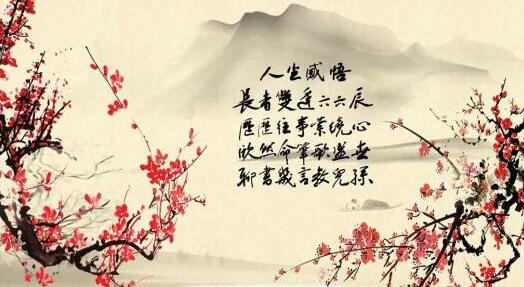 人生感悟
長者雙逢六六辰
歷歷往事縈繞心
欣然命筆歌盛世
聊書幾言教兒孫